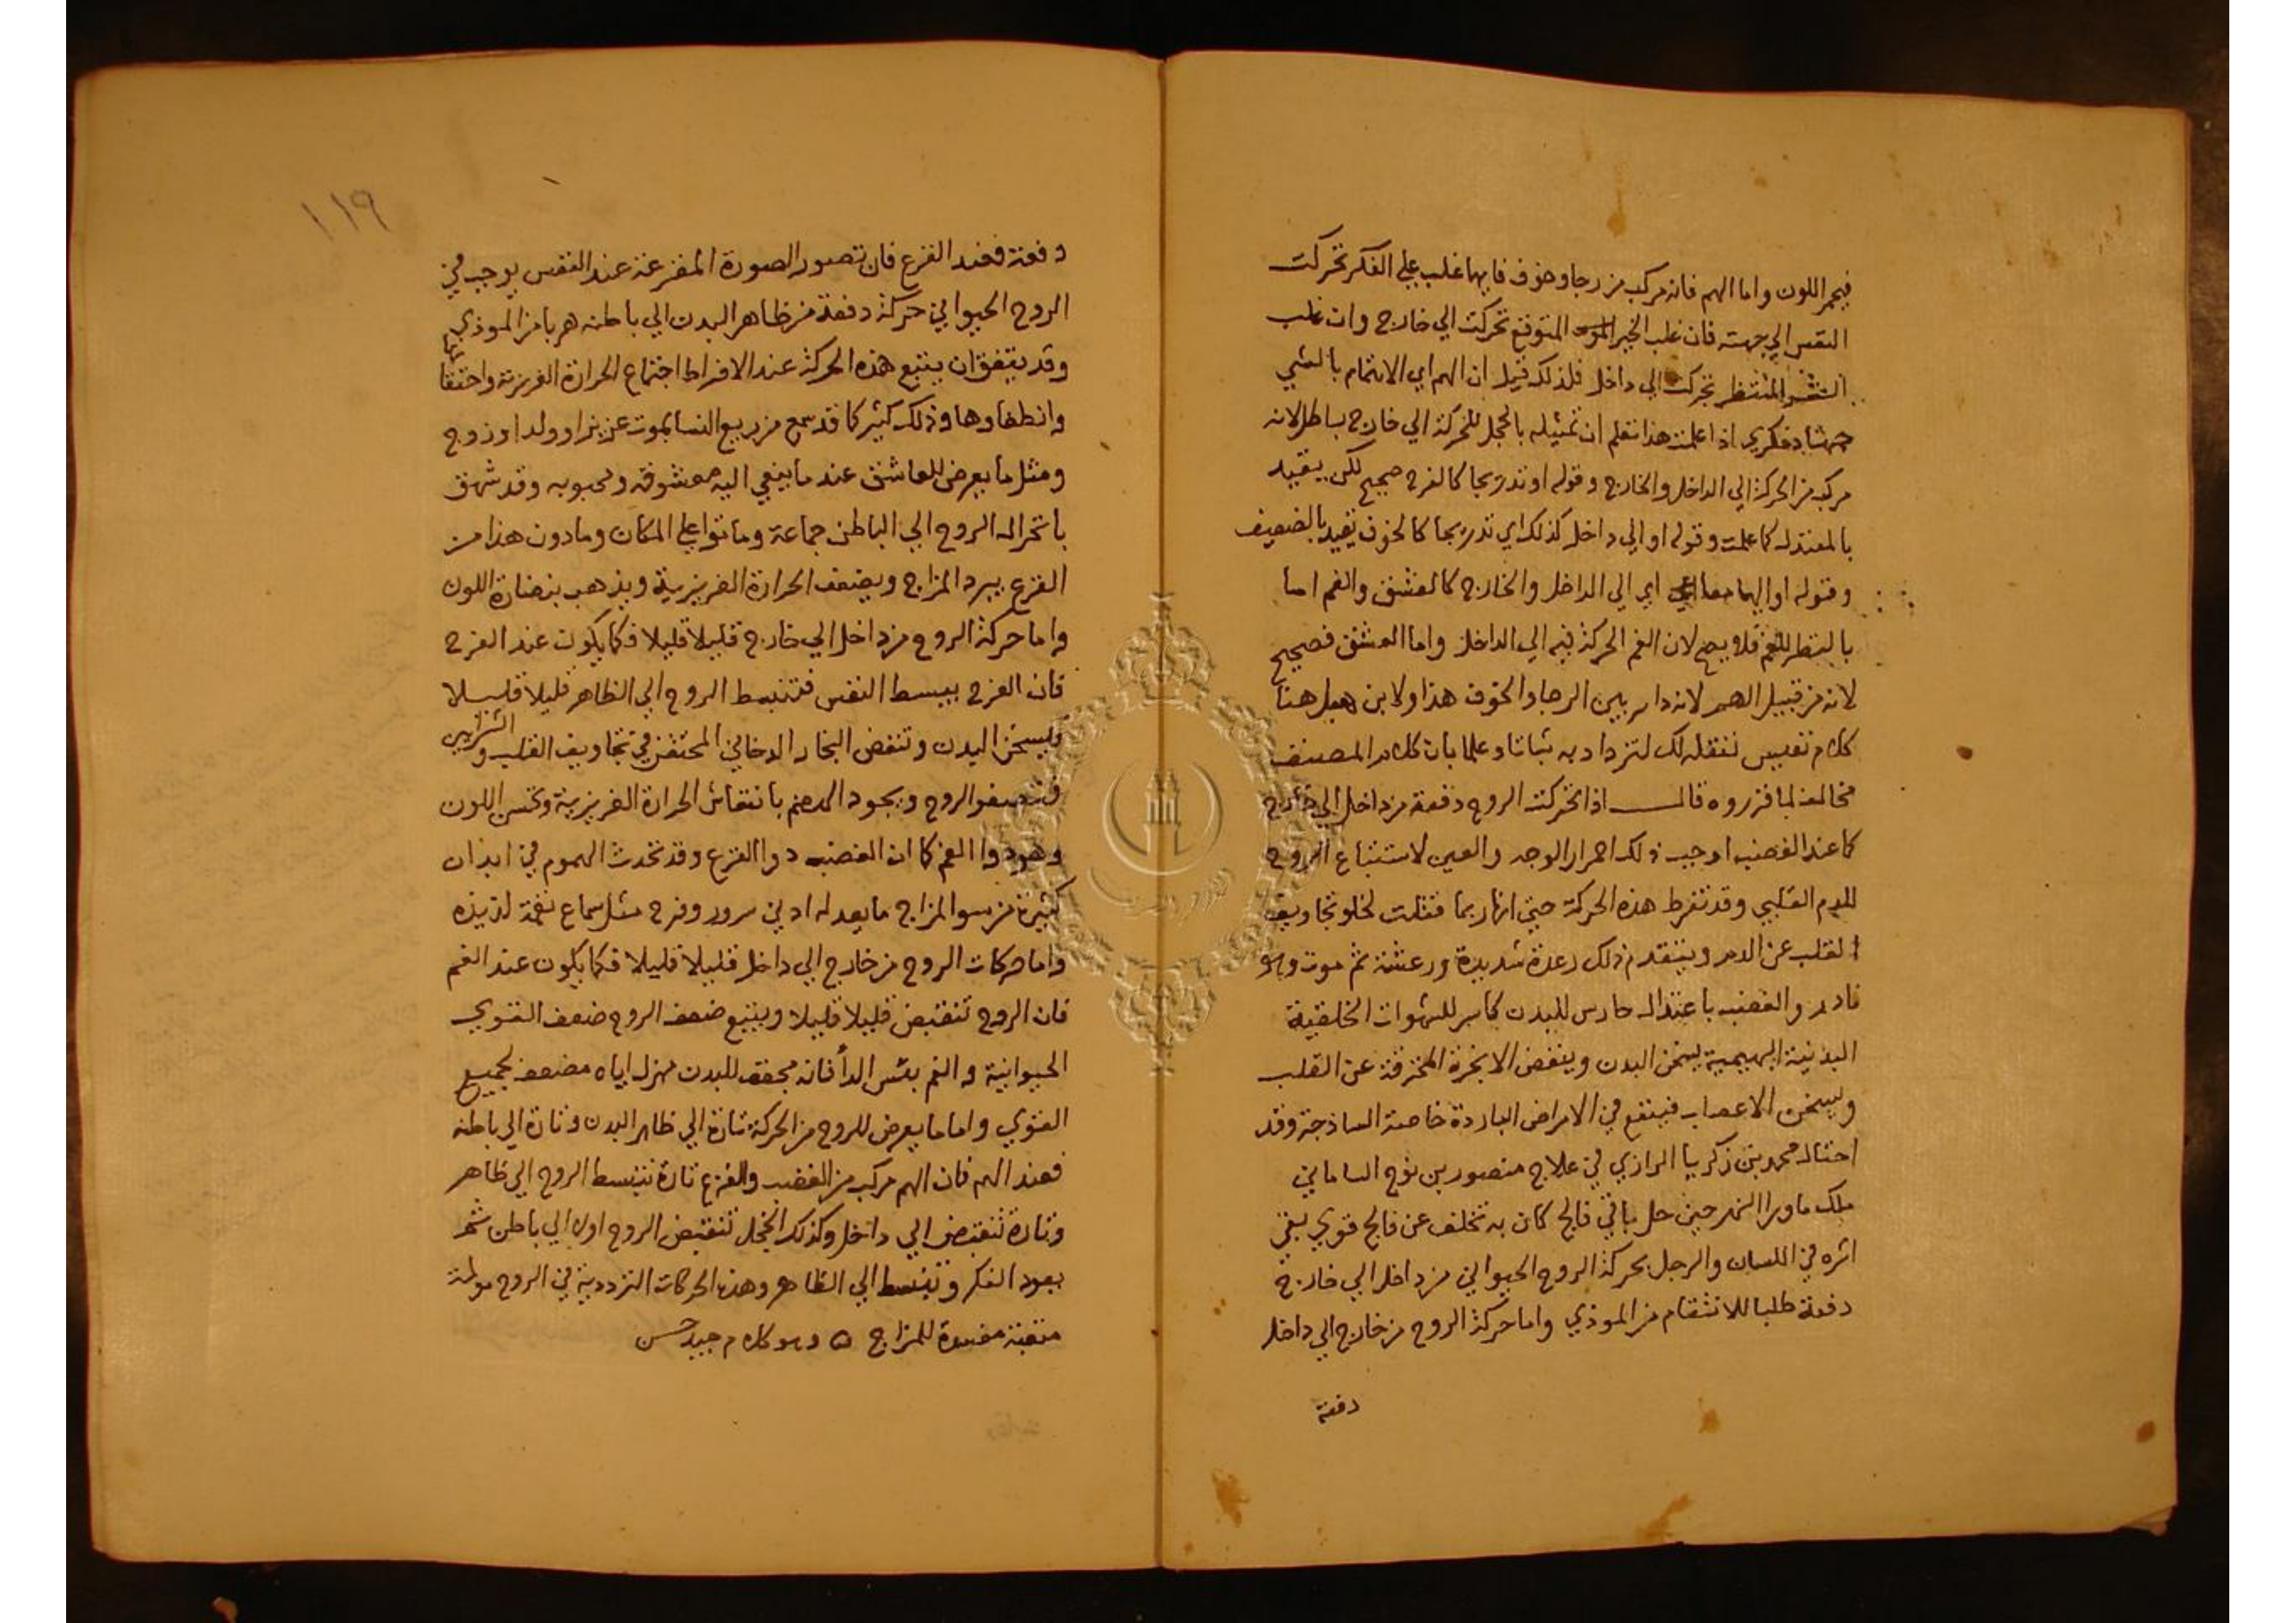 فيحمر اللون واما الهم فانه مركب من رجا وخوف فايهما غلب علي الفكر تحركت
النفس الي جهته فان غلب الخير المتوقع تحركت الي خارج وان غلب
الشر المنتظر تحركت الي داخل فلذلك قيل ان الهم اي الاهتمام بالشي
جهاد فكري اذا علمت هذا تعلم ان تمثيله بالخجل للحركة الي خارج باطل لانه
مركب من الحركة الي الداخل والخارج وقوله او تدريجا كالفرح صحيح لكن يقيد
بالمعتدل كما علمت وقوله او الي داخل كذلك اي تدريجا كالخوف يقيد بالضعيف
وقوله او اليهما معا اي الي الداخل والخارج كالعشق والغم اما
بالنظر للغم فلا يصح لان الغم الحركة فيه الي الداخل واما العشق فصحيح
لانه من قبيل الهم لانه داير بين الرجا والخوف هذا ولابن هبل هنا
كلام نفيس ننقله لك لتزداد به ثباتا وعلما بان كلام المصنف
مخالف لما قرروه قال اذا تحركت الروح دفعة من داخل الي خارج
كما عند الغضب اوجب ذلك احمرار الوجه والعين لاستتباع الروح
للدم القلبي وقد تفرط هذه الحركة حتي انها ربما قتلت لخلو تجاويف
القلب عن الدم ويتقدم ذلك رعدة شديدة ورعشة ثم موت وهو
نادر والغضب باعتدال حارس للبدن كاسر للشهوات الخلقية
البدنية البهيمية يسخن البدن وينفض الابخرة المحترقة عن القلب
ويسخن الاعصاب فينفع في الامراض الباردة خاصة الساذجة وقد
احتال محمد بن زكريا الرازي في علاج منصور بن نوح الساماني
ملك ماورا النهر حين حل باقي فالج كان به تخلف عن فالج قوي بقي
اثره في اللسان والرجل بحركة الروح الحيواني من داخل الي خارج
دفعة طلبا للانتقام من الموذي واما حركة الروح من خارج الي داخل
دفعة
١١٩
دفعة فعند الفزع فان تصور الصورة المفزعة عند النفس يوجب في
الروح الحيواني حركة دفعة من ظاهر البدن الي باطنه هربا من الموذي
وقد يتفق ان يتبع هذه الحركة عند الافراط اجتماع الحرارة الغريزية واحتقانها
وانطفاوها وذلك كثير كما قد سمع من يريع النسا بموت عزيز او ولد او زوج
ومثل ما يعرض للعاشق عند ما ينعي اليه معشوقه ومحبوبه وقد شهق
بانخزال الروح الي الباطن جماعة وماتوا علي المكان وما دون هذا من
الفزع يبرد المزاج ويضعف الحرارة الغريزية ويذهب بنضارة اللون
واما حركة الروح من داخل الي خارج قليلا قليلا فكما يكون عند الفرح
فان الفرح يبسط النفس فتنبسط الروح الي الظاهر قليلا قليلا
ويسخن البدن وتنفض البخار الدخاني المحتقن في تجاويف القلب والشرايين
فتصفو الروح ويجود الهضم بانتعاش الحرارة الغريزية وتحسن اللون
وهو دوا الغم كما ان الغضب دوا الفزع وقد تحدث الهموم في ابدان
كثيرة من سو المزاج ما يعد له ادني سرور وفرح مثل سماع نغمة لذيذه
واما حركات الروح من خارج الي داخل قليلا قليلا فكما يكون عند الغم
فان الروح تنقبض قليلا قليلا ويتبع ضعف الروح ضعف القوي
الحيوانية والغم بئس الدأ فانه مجفف للبدن مهزل اياه مضعف لجميع
القوي واما ما يعرض للروح من الحركة تارة الي ظاهر البدن وتارة الي باطنه
فعند الهم فان الهم مركب من الغضب والفزع تارة تنبسط الروح الي ظاهر
وتارة تنقبض الي داخل وكذلك الخجل تنقبض الروح اولا الي باطن ثم
يعود الفكر وتنبسط الي الظاهر وهذه الحركات الترددية في الروح مولمة
متعبة مفسدة للمزاج ه وهو كلام جيد حسن